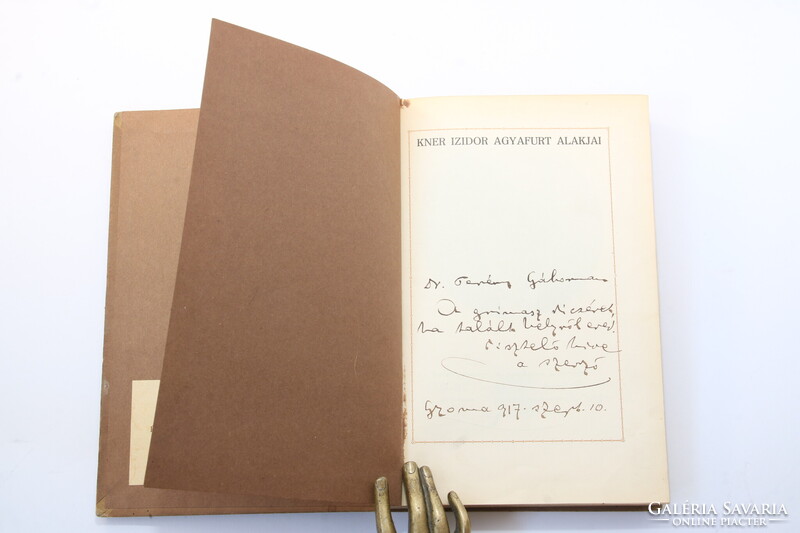 KNER IZIDOR AGYAFURT ALAKJAI
Dr. Gábornak
A grimasz dicséret,
ha talált helyről ered.
tisztelő híve
a szerző
Gyoma 917. szept. 10.
GALÉRIA SAVARIA
ONLINE PIACTÉR